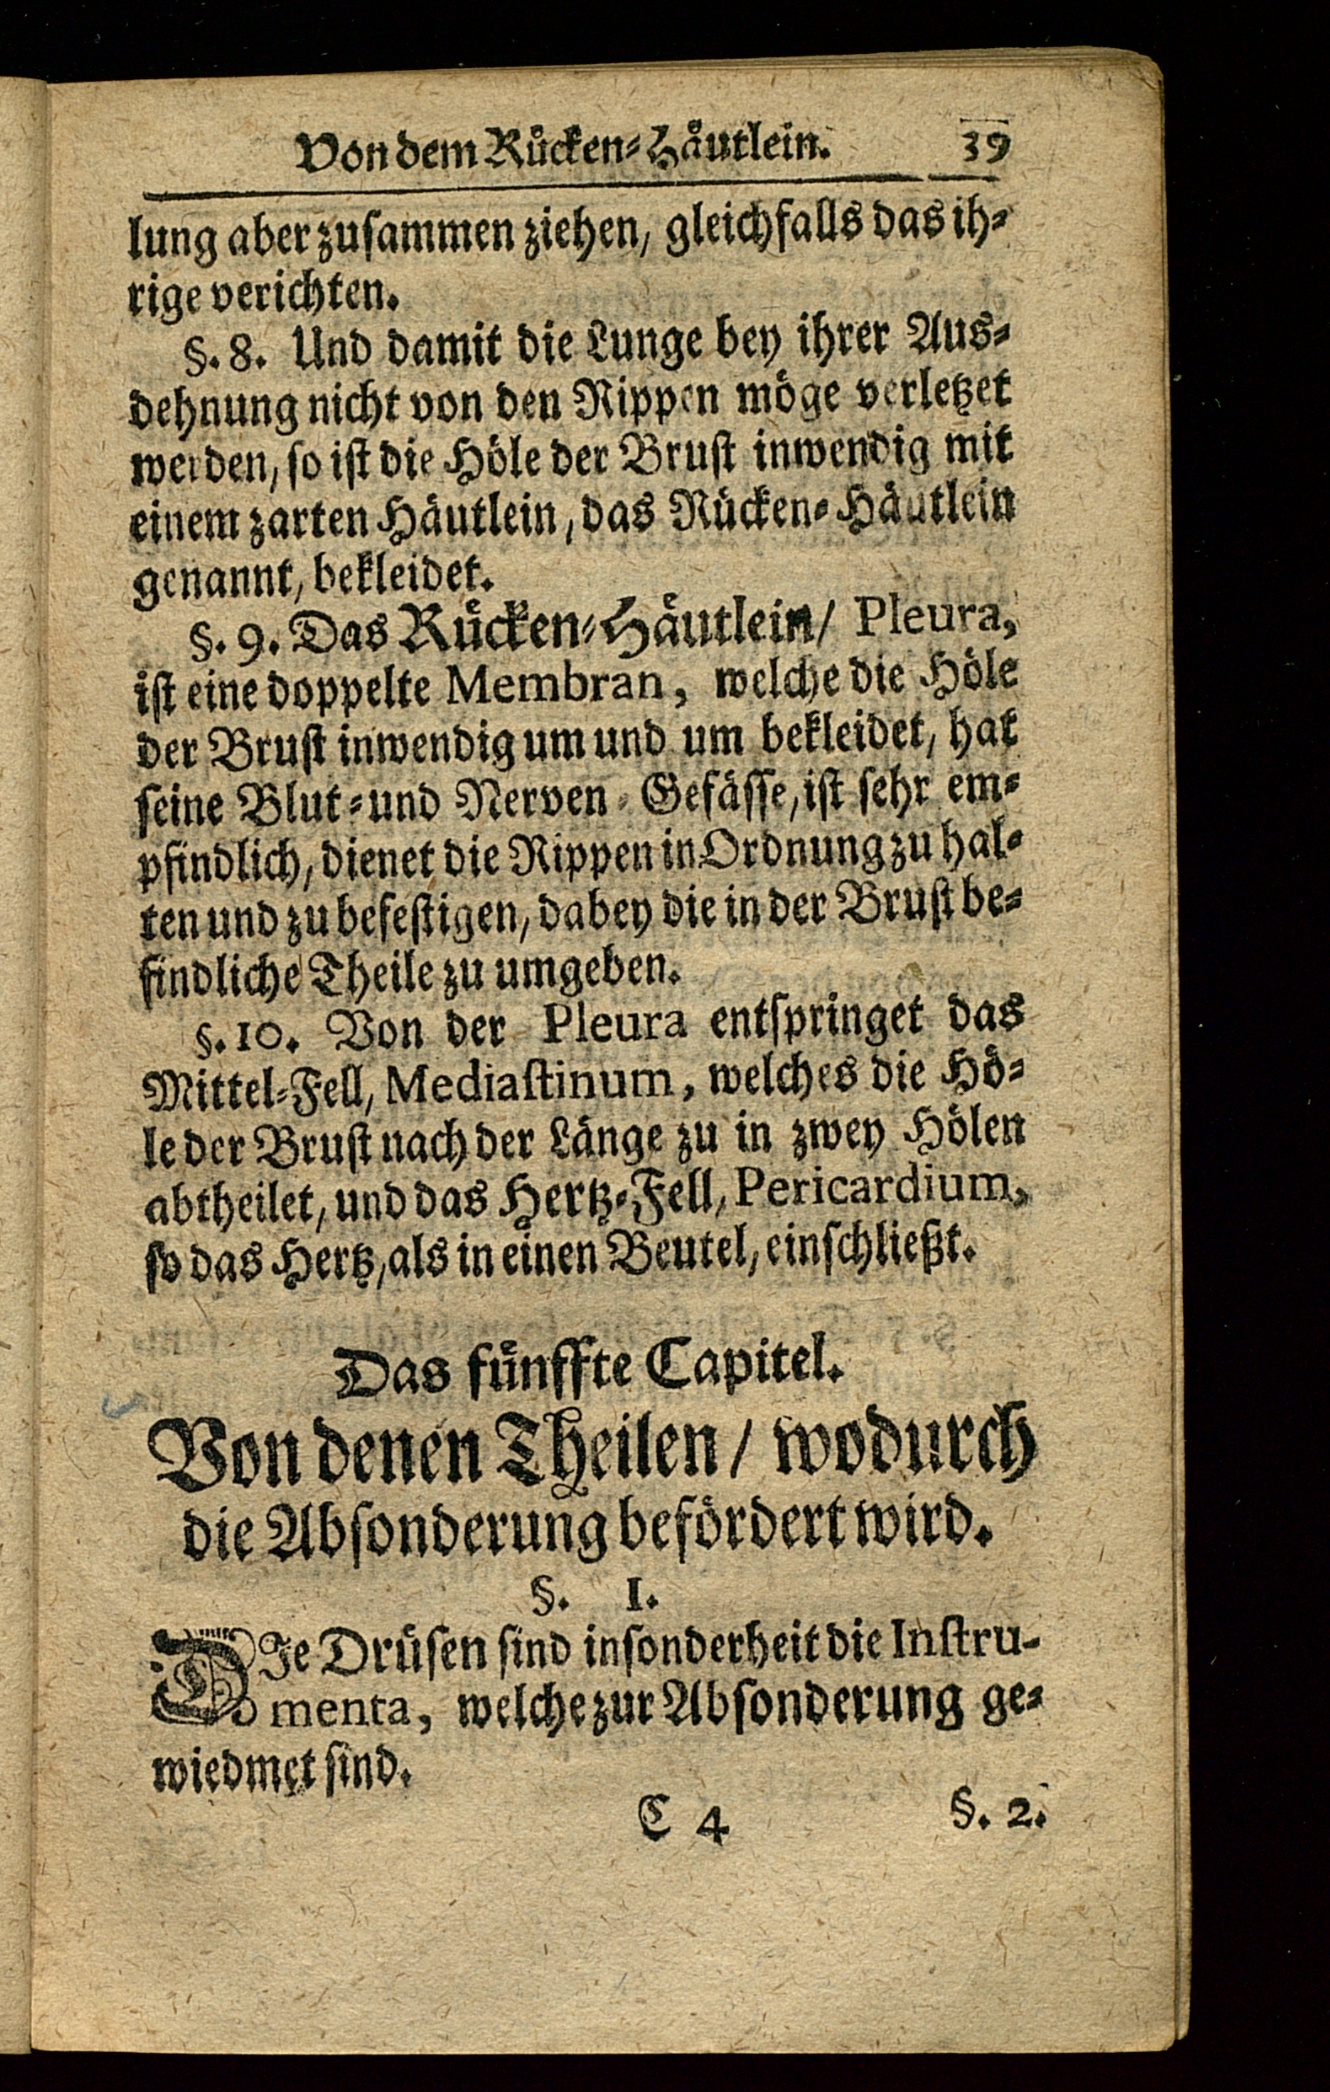 Von dem Rücken-Häutlein. 39
lung aber zusammen ziehen, gleichfalls das ih-
rige verichten.
§. 8. Und damit die Lunge bey ihrer Aus-
dehnung nicht von den Rippen möge verletzet
werden, so ist die Höle der Brust inwendig mit
einem zarten Häutlein, das Rücken-Häutlein
genannt, bekleidet.
§. 9. Das Rücken-Häutlein/ Pleura,
ist eine doppelte Membran, welche die Höle
der Brust inwendig um und um bekleidet, hat
seine Blut-und Nerven-Gefässe, ist sehr em-
pfindlich, dienet die Rippen in Ordnung zu hal-
ten und zu befestigen, dabey die in der Brust be-
findliche Theile zu umgeben.
§. 10. Von der Pleura entspringet das
Mittel-Fell, Mediastinum, welches die Hö-
le der Brust nach der Länge zu in zwey Hölen
abtheilet, und das Hertz-Fell, Pericardium,
so das Hertz, als in einen Beutel, einschließt.
Das fünffte Capitel.
Von denen Theilen/ wodurch
die Absonderung befördert wird.
§. 1.
DIe Drüsen sind insonderheit die Instru-
menta, welche zur Absonderung ge-
wiedmet sind.
C 4 §. 2.